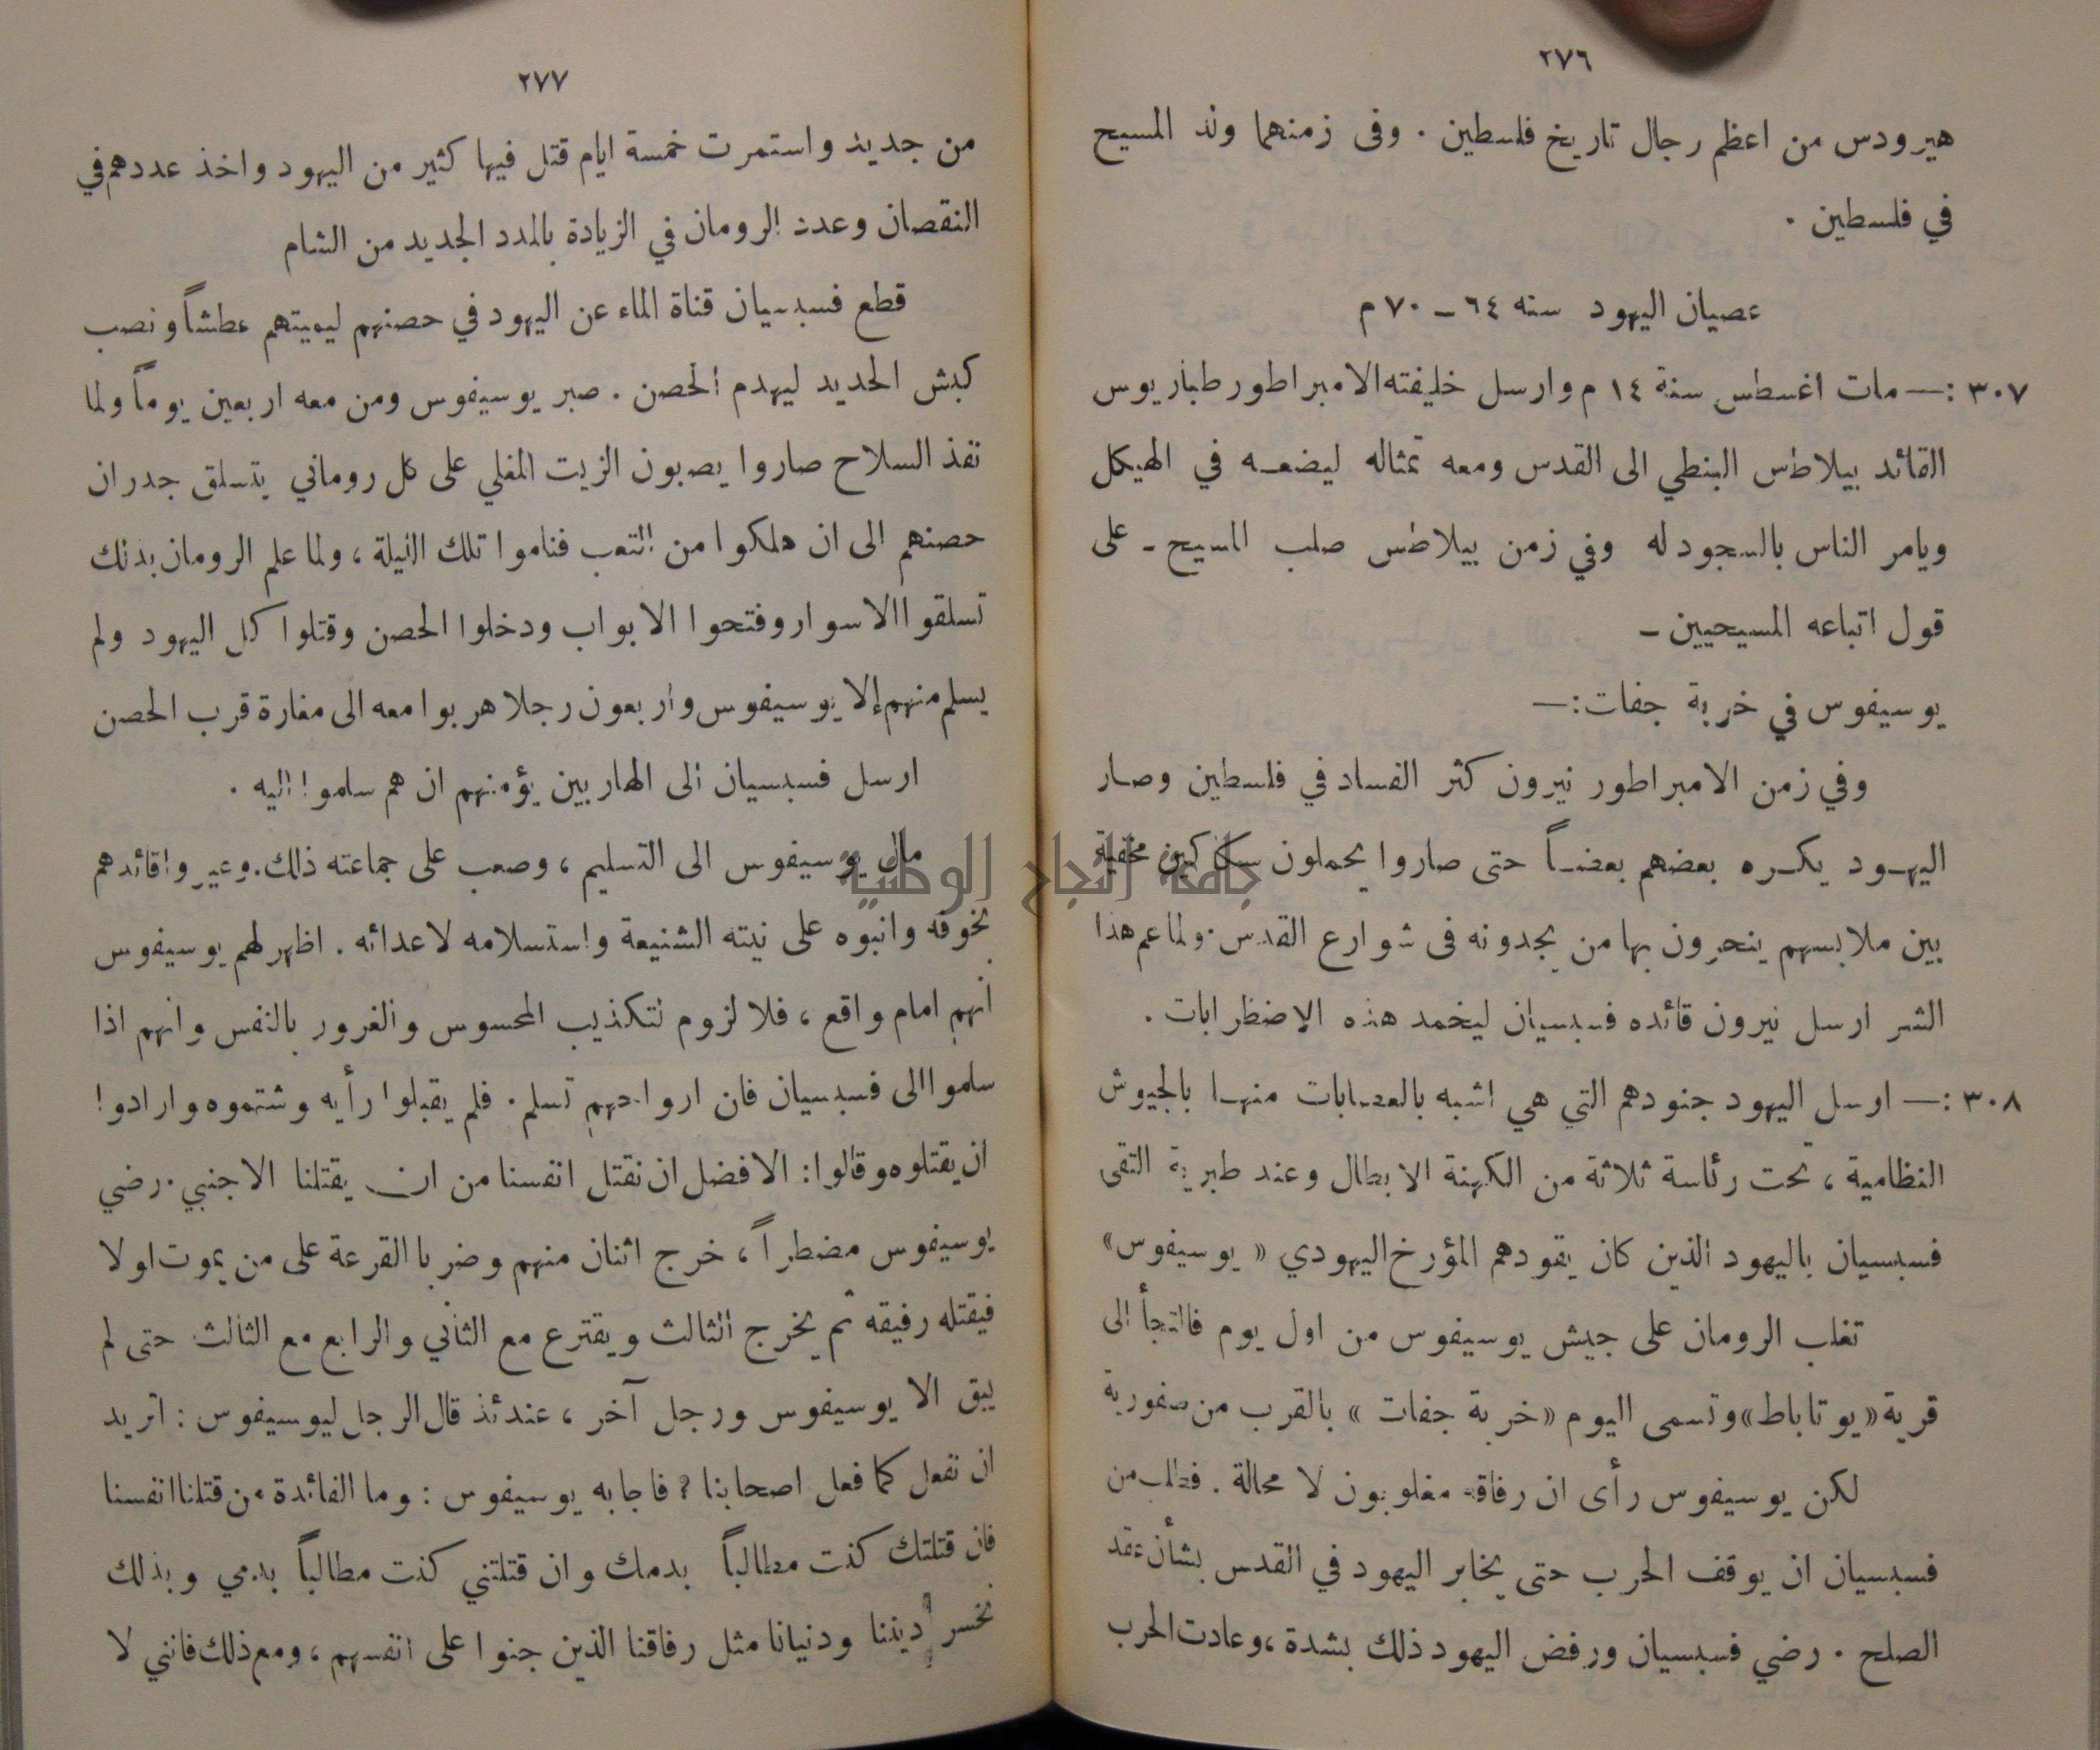 ٢٧٦
هيرودس من اعظم رجال تاريخ فلسطين . وفى زمنهما ولد المسيح
في فلسطين .
عصيان اليهود سنه ٦٤ – ٧٠ م
٣٠٧ :— مات اغسطس سنة ١٤ م وارسل خليفته الامبراطور طباريوس
القائد بيلاطس البنطي الى القدس ومعه تمثاله ليضعه في الهيكل
ويامر الناس بالسجود له وفي زمن بيلاطس صلب المسيح - على
قول اتباعه المسيحيين –
يوسيفوس في خربة جفات:—
وفي زمن الامبراطور نيرون كثر الفساد في فلسطين وصار
اليهود يكره بعضهم بعضاً حتى صاروا يحملون سكاكين مخفية
بين ملابسهم ينحرون بها من يجدونه فى شوارع القدس . ولما عم هذا
الشر ارسل نيرون قائده فسبسيان ليخمد هذه الاضطرابات .
٣٠٨ :— ارسل اليهود جنودهم التي هي اشبه بالعصابات منها بالجيوش
النظامية ، تحت رئاسة ثلاثة من الكهنة الابطال وعند طبرية التقى
فسبسيان باليهود الذين كان يقودهم المؤرخ اليهودي « يوسيفوس»
تغلب الرومان على جيش يوسيفوس من اول يوم فالتجأ الى
قرية «يوتاباط» وتسمى اليوم «خربة جفات » بالقرب من صفورية
لكن يوسيفوس رأى ان رفاقه مغلوبون لا محالة . فطلب من
فسبسيان ان يوقف الحرب حتى يخابر اليهود في القدس بشأن عقد
الصلح . رضي فسبسيان ورفض اليهود ذلك بشدة ، وعادت الحرب
٢٧٧
من جديد واستمرت خمسة ايام قتل فيها كثير من اليهود واخذ عددهم في
النقصان وعدد الرومان في الزيادة بالمدد الجديد من الشام
قطع فسبسيان قناة الماء عن اليهود في حصنهم ليميتهم عطشاً ونصب
كبش الحديد ليهدم الحصن . صبر يوسيفوس ومن معه اربعين يوماً ولما
نفذ السلاح صاروا يصبون الزيت المغلي على كل روماني يتسلق جدران
حصنهم الى ان هلكوا من التعب فناموا تلك الليلة ، ولما علم الرومان بذلك
تسلقوا الاسوار وفتحوا الابواب ودخلوا الحصن وقتلوا كل اليهود ولم
يسلم منهم إلا يوسيفوس واربعون رجلا هربوا معه الى مغارة قرب الحصن
ارسل فسبسيان الى الهاربين يؤمنهم ان هم سلموا اليه .
مال يوسيفوس الى التسليم ، وصعب على جماعته ذلك . وعيروا قائدهم
بخوفه وانبوه على نيته الشنيعة واستسلامه لاعدائه . اظهر لهم يوسيفوس
انهم امام واقع ، فلا لزوم لتكذيب المحسوس والغرور بالنفس وانهم اذا
سلموا الى فسبسيان فان ارواحهم تسلم . فلم يقبلوا رأيه وشتموه وارادوا
ان يقتلوه وقالوا : الافضل ان نقتل انفسنا من ان يقتلنا الاجنبي . رضي
يوسيفوس مضطراً ، خرج اثنان منهم وضربا القرعة على من يموت اولا
فيقتله رفيقه ثم يخرج الثالث ويقترع مع الثاني والرابع مع الثالث حتى لم
يبق الا يوسيفوس ورجل آخر ، عندئذ قال الرجل ليوسيفوس : اتريد
ان نفعل كما فعل اصحابنا ؟ فاجابه يوسيفوس : وما الفائدة من قتلنا انفسنا
فان قتلتك كنت مطالباً بدمك وان قتلتني كنت مطالباً بدمي وبذلك
نخسر ديننا ودنيانا مثل رفاقنا الذين جنوا على انفسهم ، ومع ذلك فانني لا
جامعة النجاح الوطنية